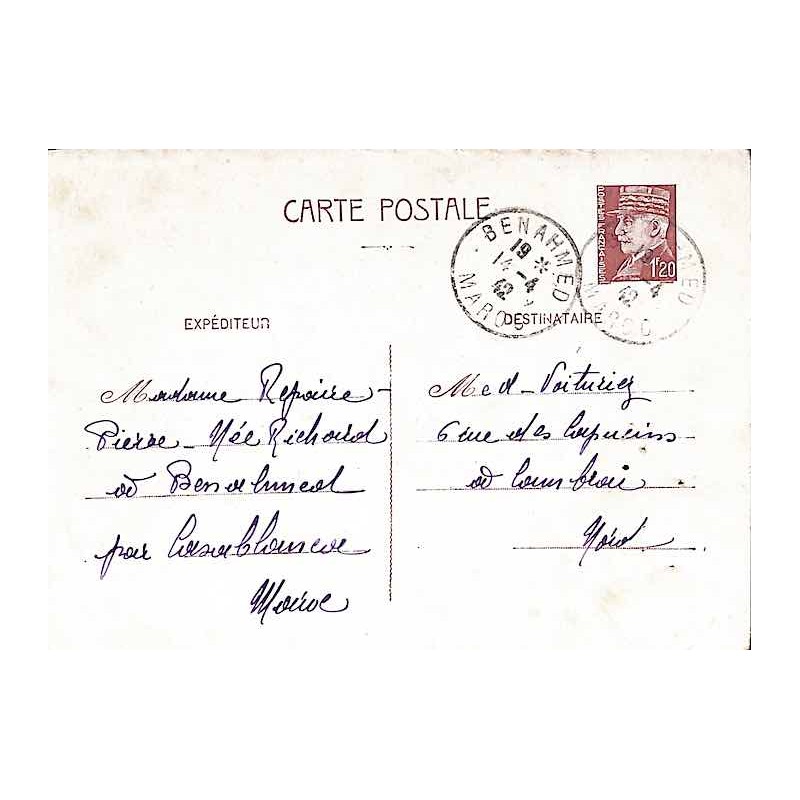 CARTE POSTALE
POSTES FRANÇAISES
1F20
BENAHMED
19 *
14 - 4
42
MAROC
BENAHMED
19
14 - 4
42
MAROC
EXPÉDITEUR
Madame Repaire-
Pierre - Née Richard
à Benahmed
par Casablanca
Maroc
DESTINATAIRE
Med - Voituriez
6 rue des Capucins
à Cambrai
Nord